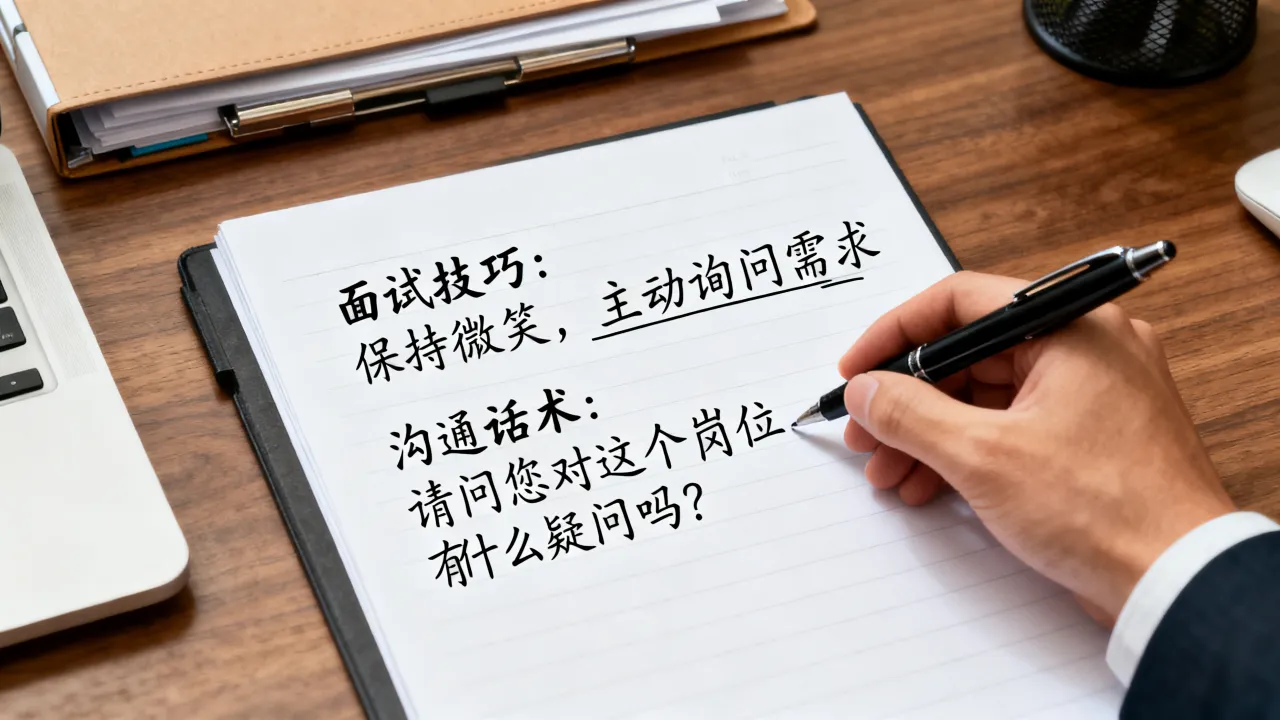 面试技巧：
保持微笑，主动询问需求
沟通话术：
请问您对这个岗位
有什么疑问吗？